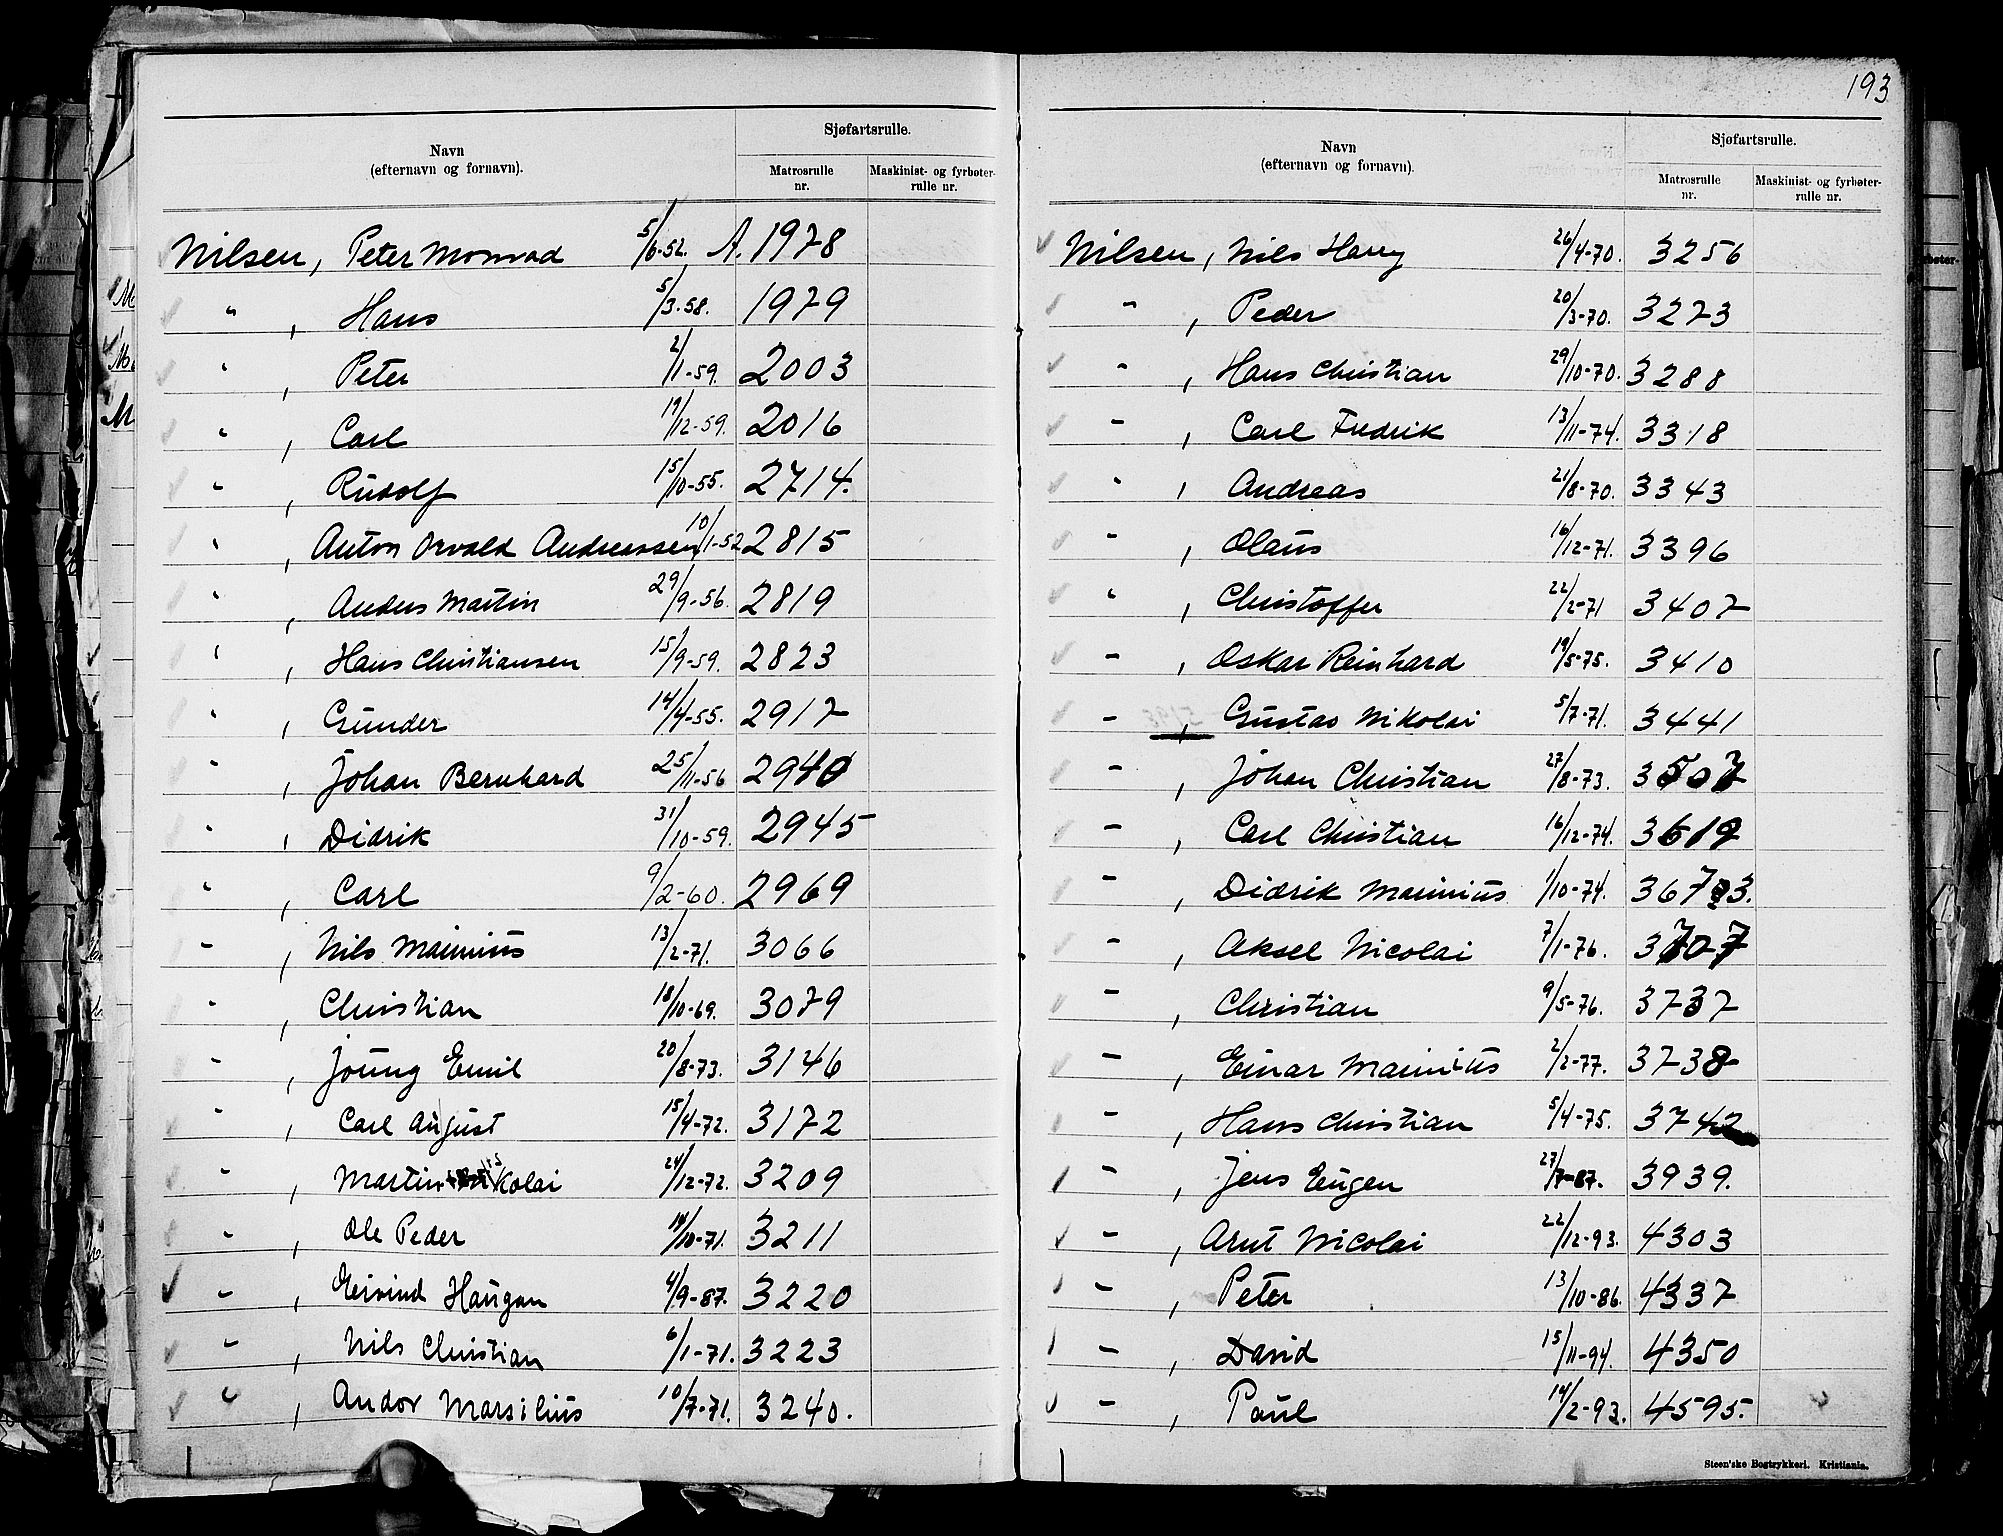 193
Sjøfartsrulle.
Navn
(efternavn og fornavn).
Matrosrulle
nr.
Maskinist- og fyrbøter-
rulle nr.
Nilsen, Peter Monrad 5/6-52. A. 1978
" , Hans 5/3-58. 1979
" , Peter 2/1-59. 2003
" , Carl 19/12-59. 2016
" , Rudolf 15/10-55. 2714.
" , Anton Orvald Andreassen 10/1-52 2815
" , Anders Martin 29/9-56. 2819
" , Hans Christiansen 15/9-59. 2823
" , Gunder 14/4-55. 2917
" , Johan Bernhard 25/11-56 2940
" , Didrik 31/10-59. 2945
" , Carl 9/2-60. 2969
" , Nils Marinius 13/2-71. 3066
" , Christian 18/10-69. 3079
" , Joung Emil 20/8-73. 3146
" , Carl August 15/4-72. 3172
" , Martin Nikolai 24/12-72. 3209
" , Ole Peder 14/10-71. 3211
" , Eivind Haugan 4/9-87. 3220
" , Nils Christian 6/1-71. 3223
" , Andor Marsilius 10/7-71. 3240.
Sjøfartsrulle.
Navn
(efternavn og fornavn).
Matrosrulle
nr.
Maskinist- og fyrbøter-
rulle nr.
Nilsen, Nils Harry 26/4-70. 3256
" , Peder 20/3-70. 3273
" , Hans Christian 29/10-70. 3288
" , Carl Fredrik 13/11-74. 3318
" , Andreas 21/8-70. 3343
" , Olaus 16/12-71. 3396
" , Christoffer 22/2-71 3407
" , Oskar Reinhard 19/5-75. 3410
" , Gustav Nikolai 5/7-71. 3441
" , Johan Christian 27/8-73. 3507
" , Carl Christian 16/12-74. 3619
" , Didrik Marinius 1/10-74. 3673.
" , Aksel Nicolai 7/1-76. 3707
" , Christian 9/5-76. 3737
" , Einar Marinius 2/2-77. 3738
" , Hans Christian 5/4-75. 3742
" , Jens Eugen 27/7-87. 3939.
" , Arnt Nicolai 22/12-93. 4303
" , Peter 13/10-86. 4337
" , David 15/11-94. 4350
" , Paul 14/2-93. 4595.
Steen'ske Bogtrykkeri. Kristiania.